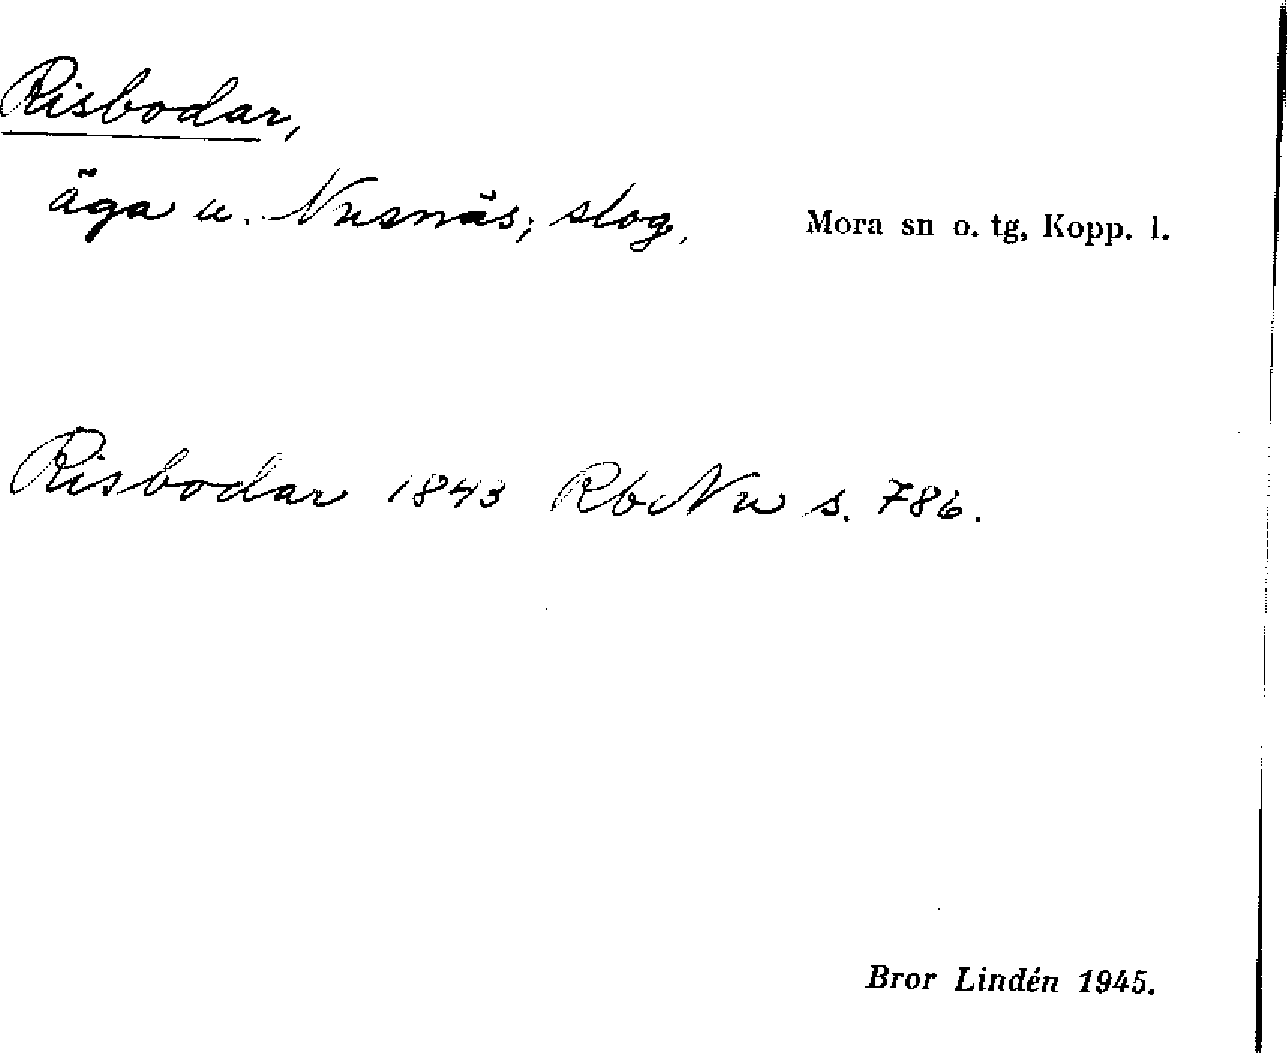 Risbodar,
äga u. Nusnäs; slog. Mora sn o. tg, Kopp. l.
Risbodar 1843 RbNu s. 786.
Bror Lindén 1945.